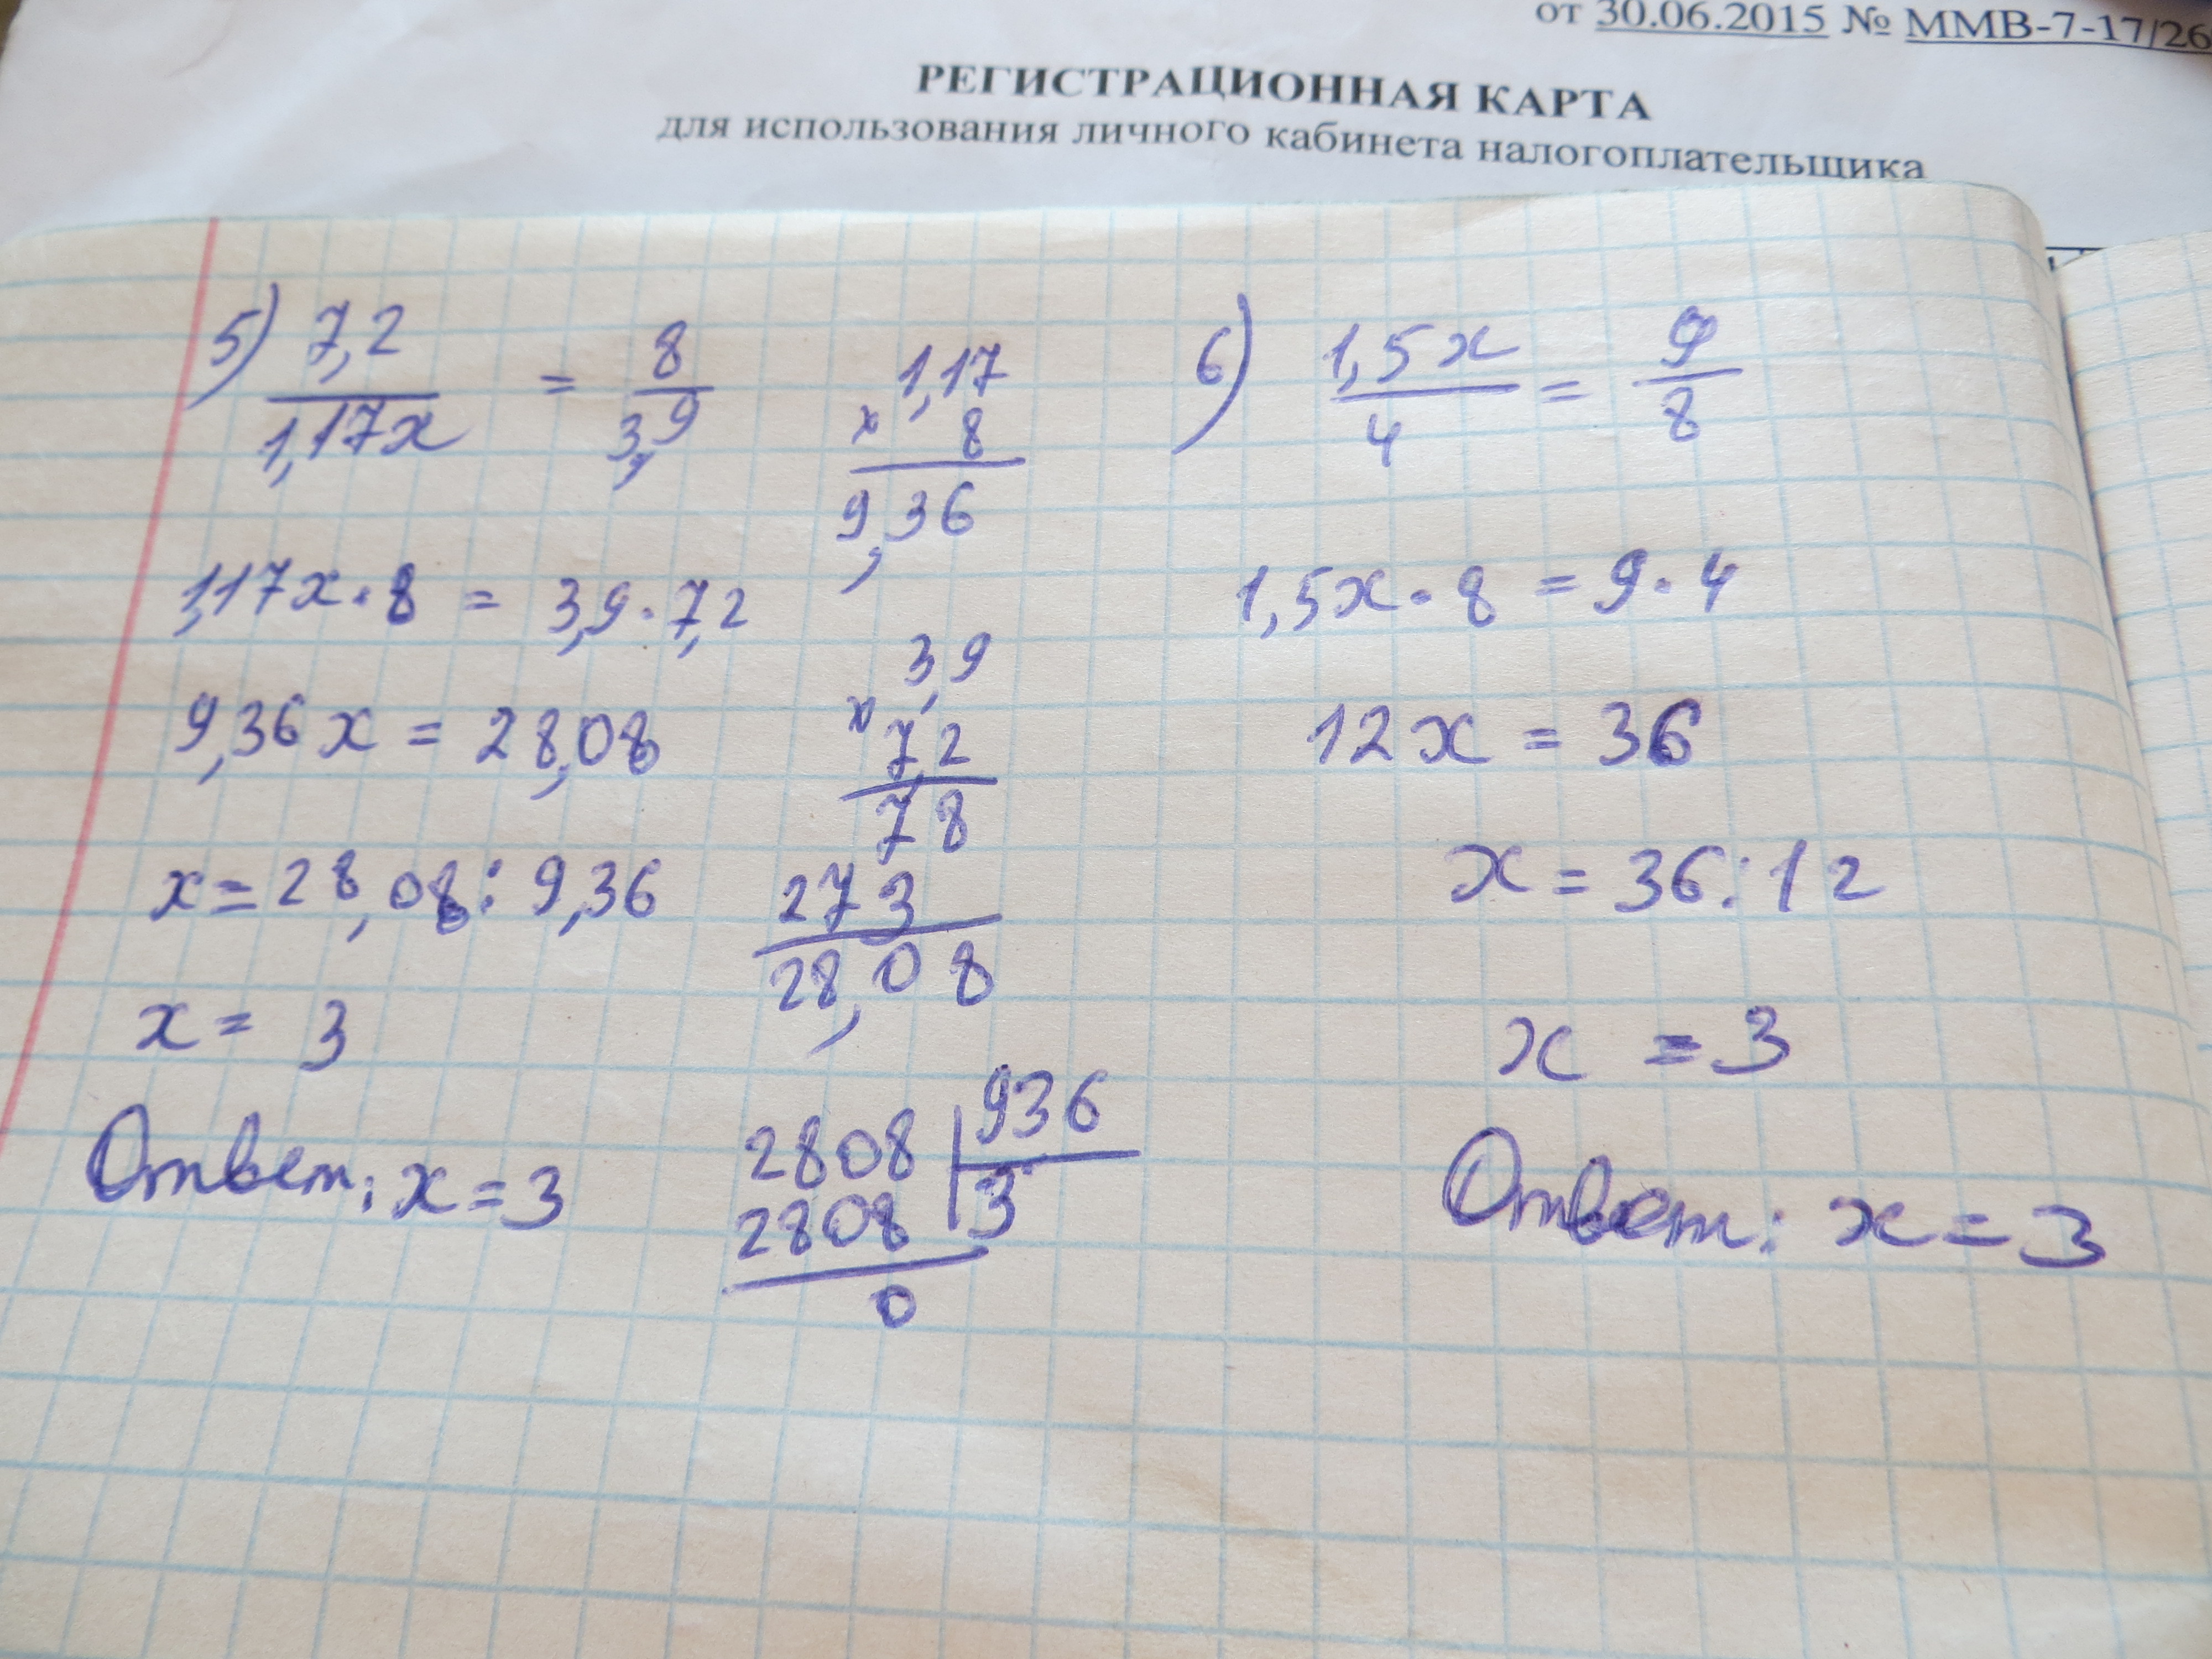 от 30.06.2015 № ММВ-7-17/26
РЕГИСТРАЦИОННАЯ КАРТА
для использования личного кабинета налогоплательщика
5) 7,2/1,17x = 8/3,9
1,17x · 8 = 3,9 · 7,2
9,36x = 28,08
x = 28,08 : 9,36
x = 3
Ответ: x = 3
1,17
x 8
9,36
3,9
x 7,2
78
273
28,08
2808 | 936
2808 3
0
6) 1,5x/4 = 9/8
1,5x · 8 = 9 · 4
12x = 36
x = 36 : 12
x = 3
Ответ: x = 3